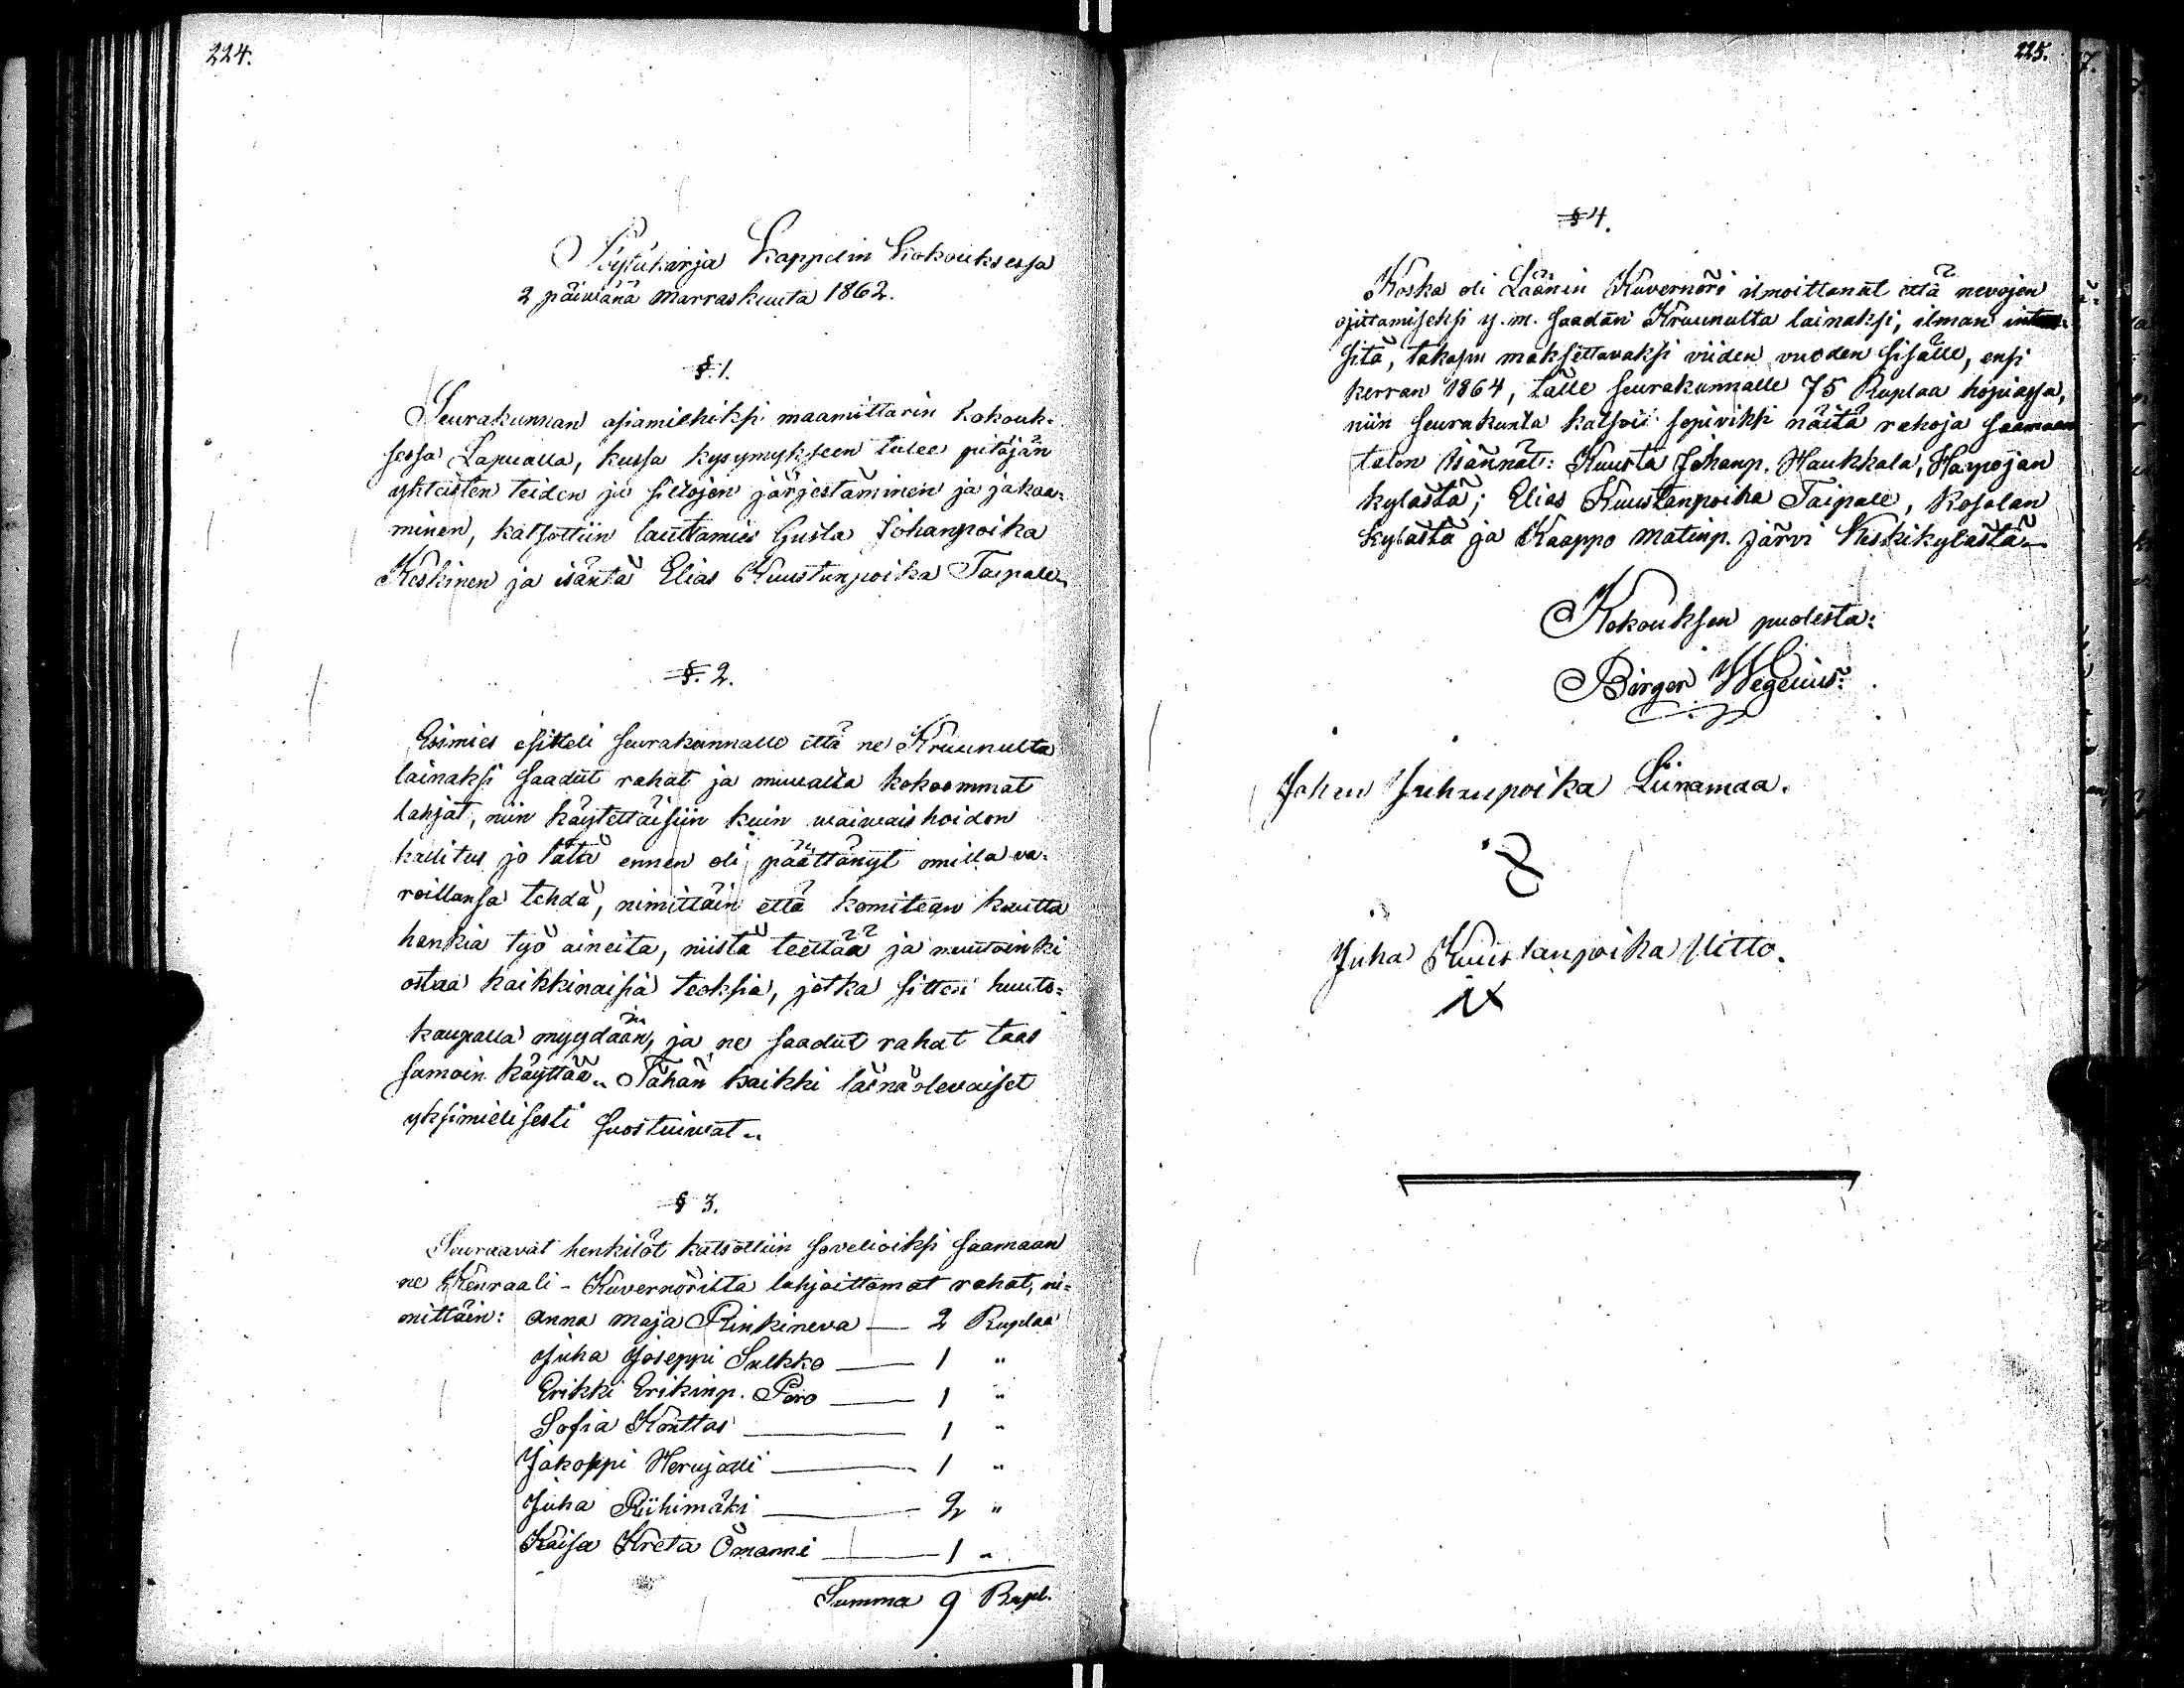 224.
Pöytäkirja Kappelin Kokouksessa
2 päiwänä Marraskuuta 1862.
§. 1.
Seurakunnan asiamiehiksi maamittarin kokouk-
sessa Lapualla, kussa kysymykseen tulee pitäjän
yhteisten teiden ja siltojen järjestäminen ja jakaa-
minen, katsottiin lauttamies Gusta Johanpoika
Keskinen ja isäntä Elias Kuustanpoika Taipale.
§. 2.
Esimies esitteli seurakunnalle että ne Kruunulta
lainaksi saadut rahat ja muualta kokoommat
lahjat, niin käytettäisiin kuin waiwaishoidon
hallitus jo tätä ennen oli päättänyt omilla va-
roillansa tehdä, nimittäin että komitean kautta
hankia työ aineita, niistä teettää ja muutoinki
ostaa kaikkinaisia teoksia, jotka sitten huuto-
kaupalla myydään, ja ne saadut rahat taas
samoin käyttää. Tähän kaikki läsnäolevaiset
yksimielisesti suostuiwat.
§ 3.
Seuraavat henkilöt katsottiin sovelioiksi saamaan
ne Kenraali-Kuvernörilta lahjoittamat rahat, ni-
mittäin: Anna Maja Rinkineva — 2 Ruplaa
Juha Joseppi Sulkko — 1 "
Erikki Erikinp. Pero — 1 "
Sofia Konttas — 1 "
Jakoppi Heru — 1 "
Juha Riihimäki — 2 "
Kaisa Kreta Ömanni — 1 "
Summa 9 Rupl.
225.
§ 4.
Koska oli Läänin Kuvernöri ilmoittanut että nevojen
ojittamiseksi y. m. saadan Kruunulta lainaksi, ilman
sitä, takasin maksettavaksi viiden vuoden sisälle, ensi
kerran 1864, tälle seurakunnalle 75 Ruplaa hopiassa,
niin seurakunta katsoi sopiviksi näitä rahoja saamaan
talon isännät: Kuusta Johanp. Haukkala, Haapojan
kylästä; Elias Kuustanpoika Taipale, Kosolan
kylästä ja Kaappo Matinp. Järvi Keskikylästä.
Kokouksen puolesta:
Birger Wegelius.
Johan Juhanpoika Liinamaa.
Juha Kuustanpoika Uitto.